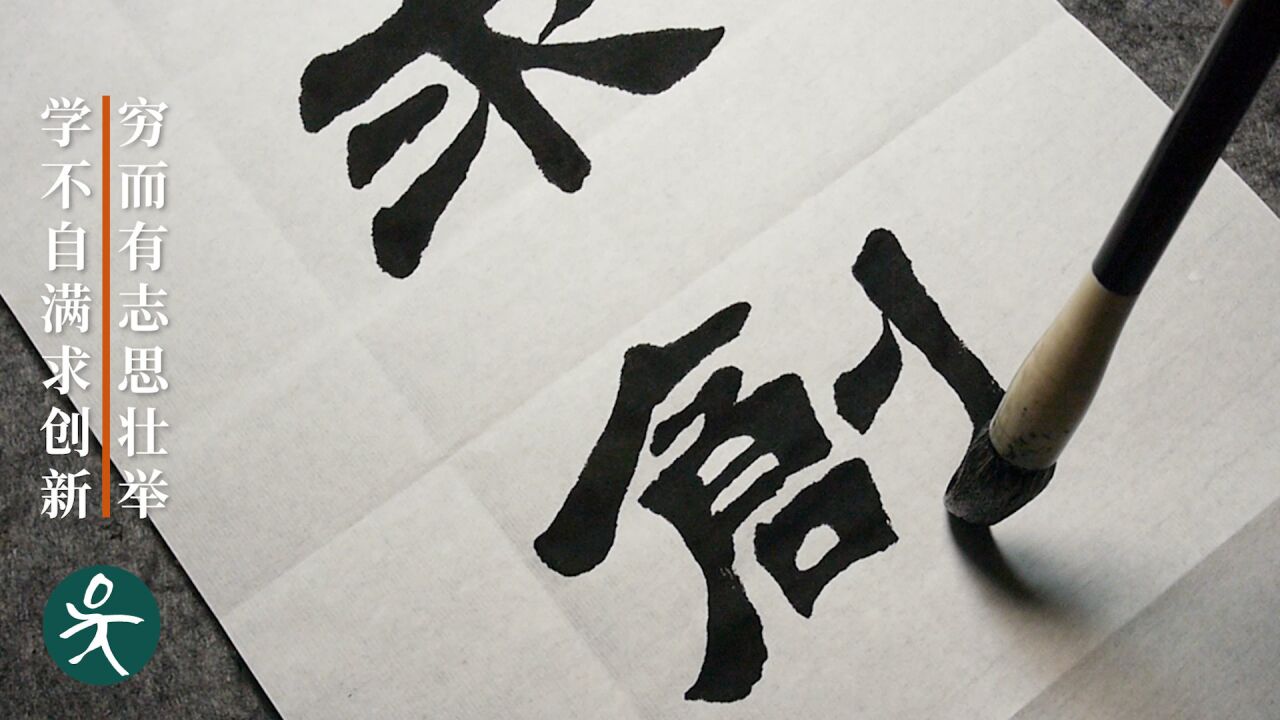 穷而有志思壮举
学不自满求创新
求
創